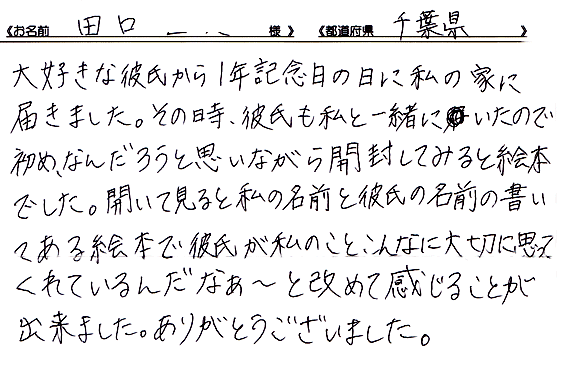 《お名前 田口 様》 《都道府県 千葉県 》
大好きな彼氏から1年記念日の日に私の家に
届きました。その時、彼氏も私と一緒にいたので
初め、なんだろうと思いながら開封してみると絵本
でした。開いて見ると私の名前と彼氏の名前の書い
てある絵本で彼氏が私のこと、こんなに大切に思って
くれているんだなぁ〜と改めて感じることが
出来ました。ありがとうございました。